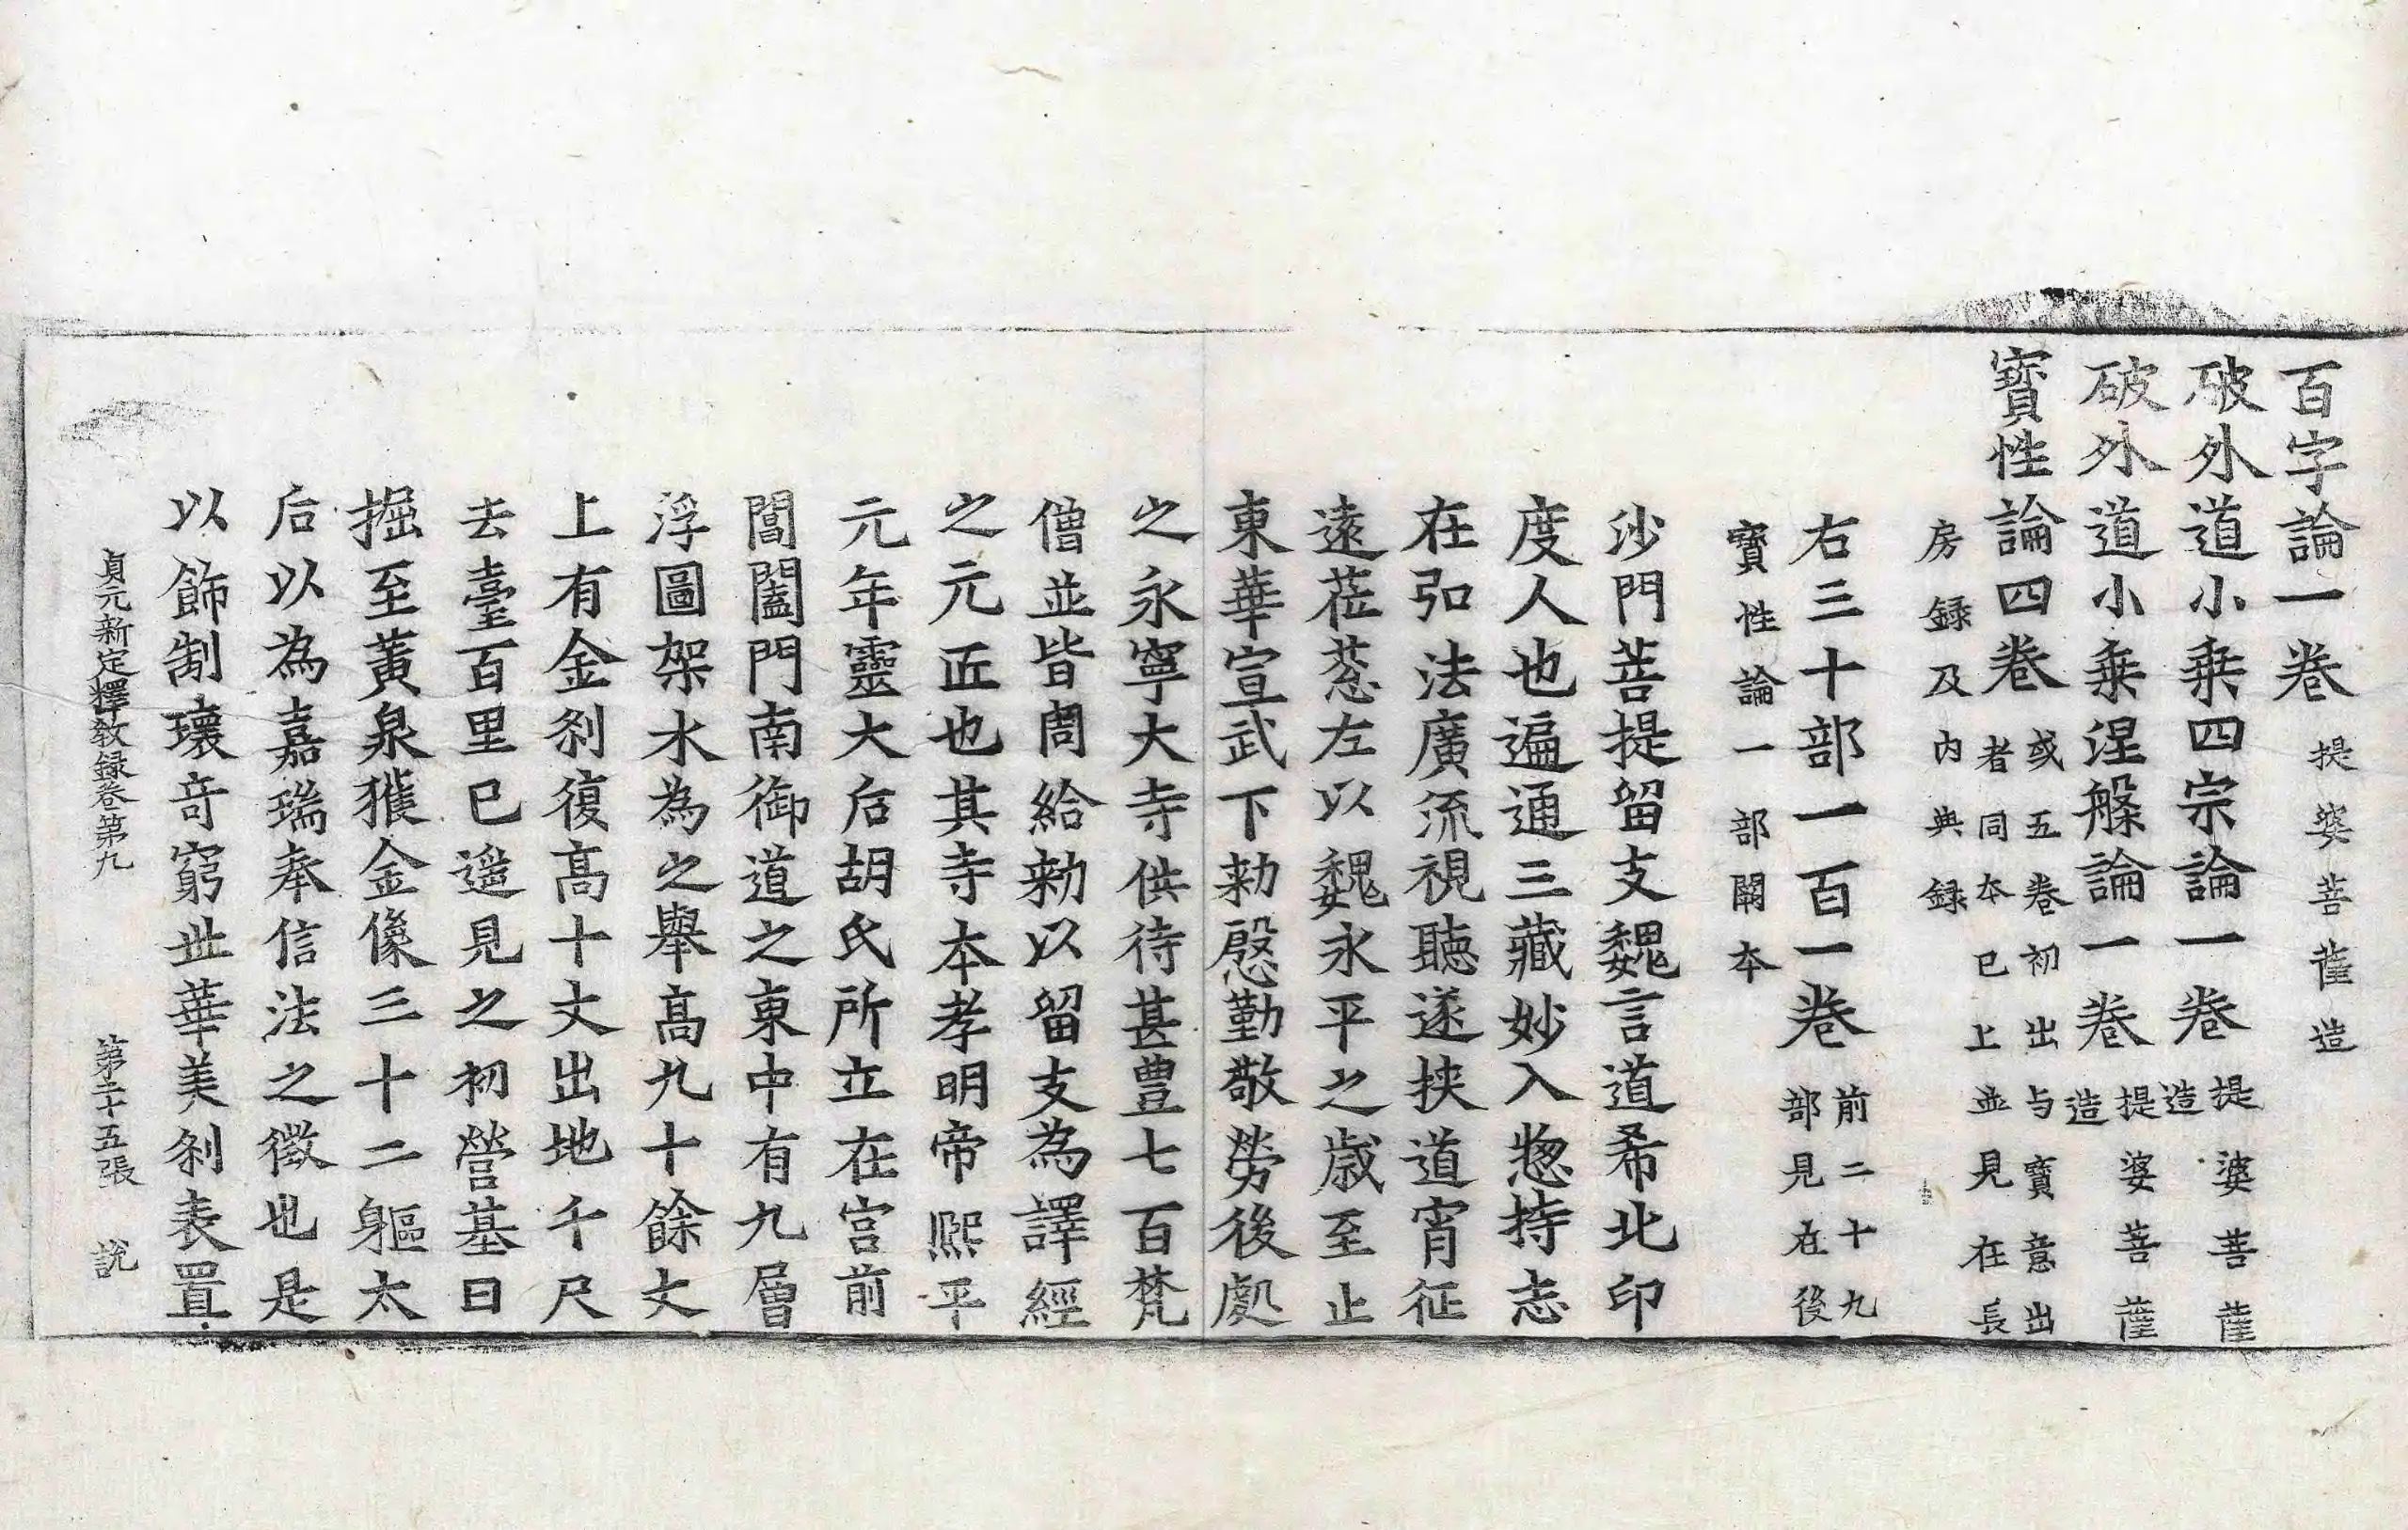 百字論一卷提婆菩薩造
破外道小乗四宗論一卷提婆菩薩造
破外道小乗涅槃論一卷提婆菩薩造
寶性論四卷或五卷初出与寶意出者同本已上並見在長
房録及内典録
右三十部一百一卷前二十九部見在後
寶性論一部闕本
沙門菩提留支魏言道希北印
度人也遍通三藏妙入惣持志
在弘法廣流視聽遂挾道宵征
遠莅葱左以魏永平之歳至止
東華宣武下勑慇勤敬勞後處
之永寧大寺供待甚豊七百梵
僧並皆周給勑以留支為譯經
之元匠也其寺本孝明帝熙平
元年靈大后胡氏所立在宫前
閶闔門南御道之東中有九層
浮圖架木為之舉髙九十餘丈
上有金刹復髙十丈出地千尺
去臺百里已遥見之初營基日
掘至黄泉獲金像三十二軀太
后以為嘉瑞奉信法之徴也是
以飾制瓌奇窮世華美刹表置
貞元新定釋教録卷第九　第二十五張　説